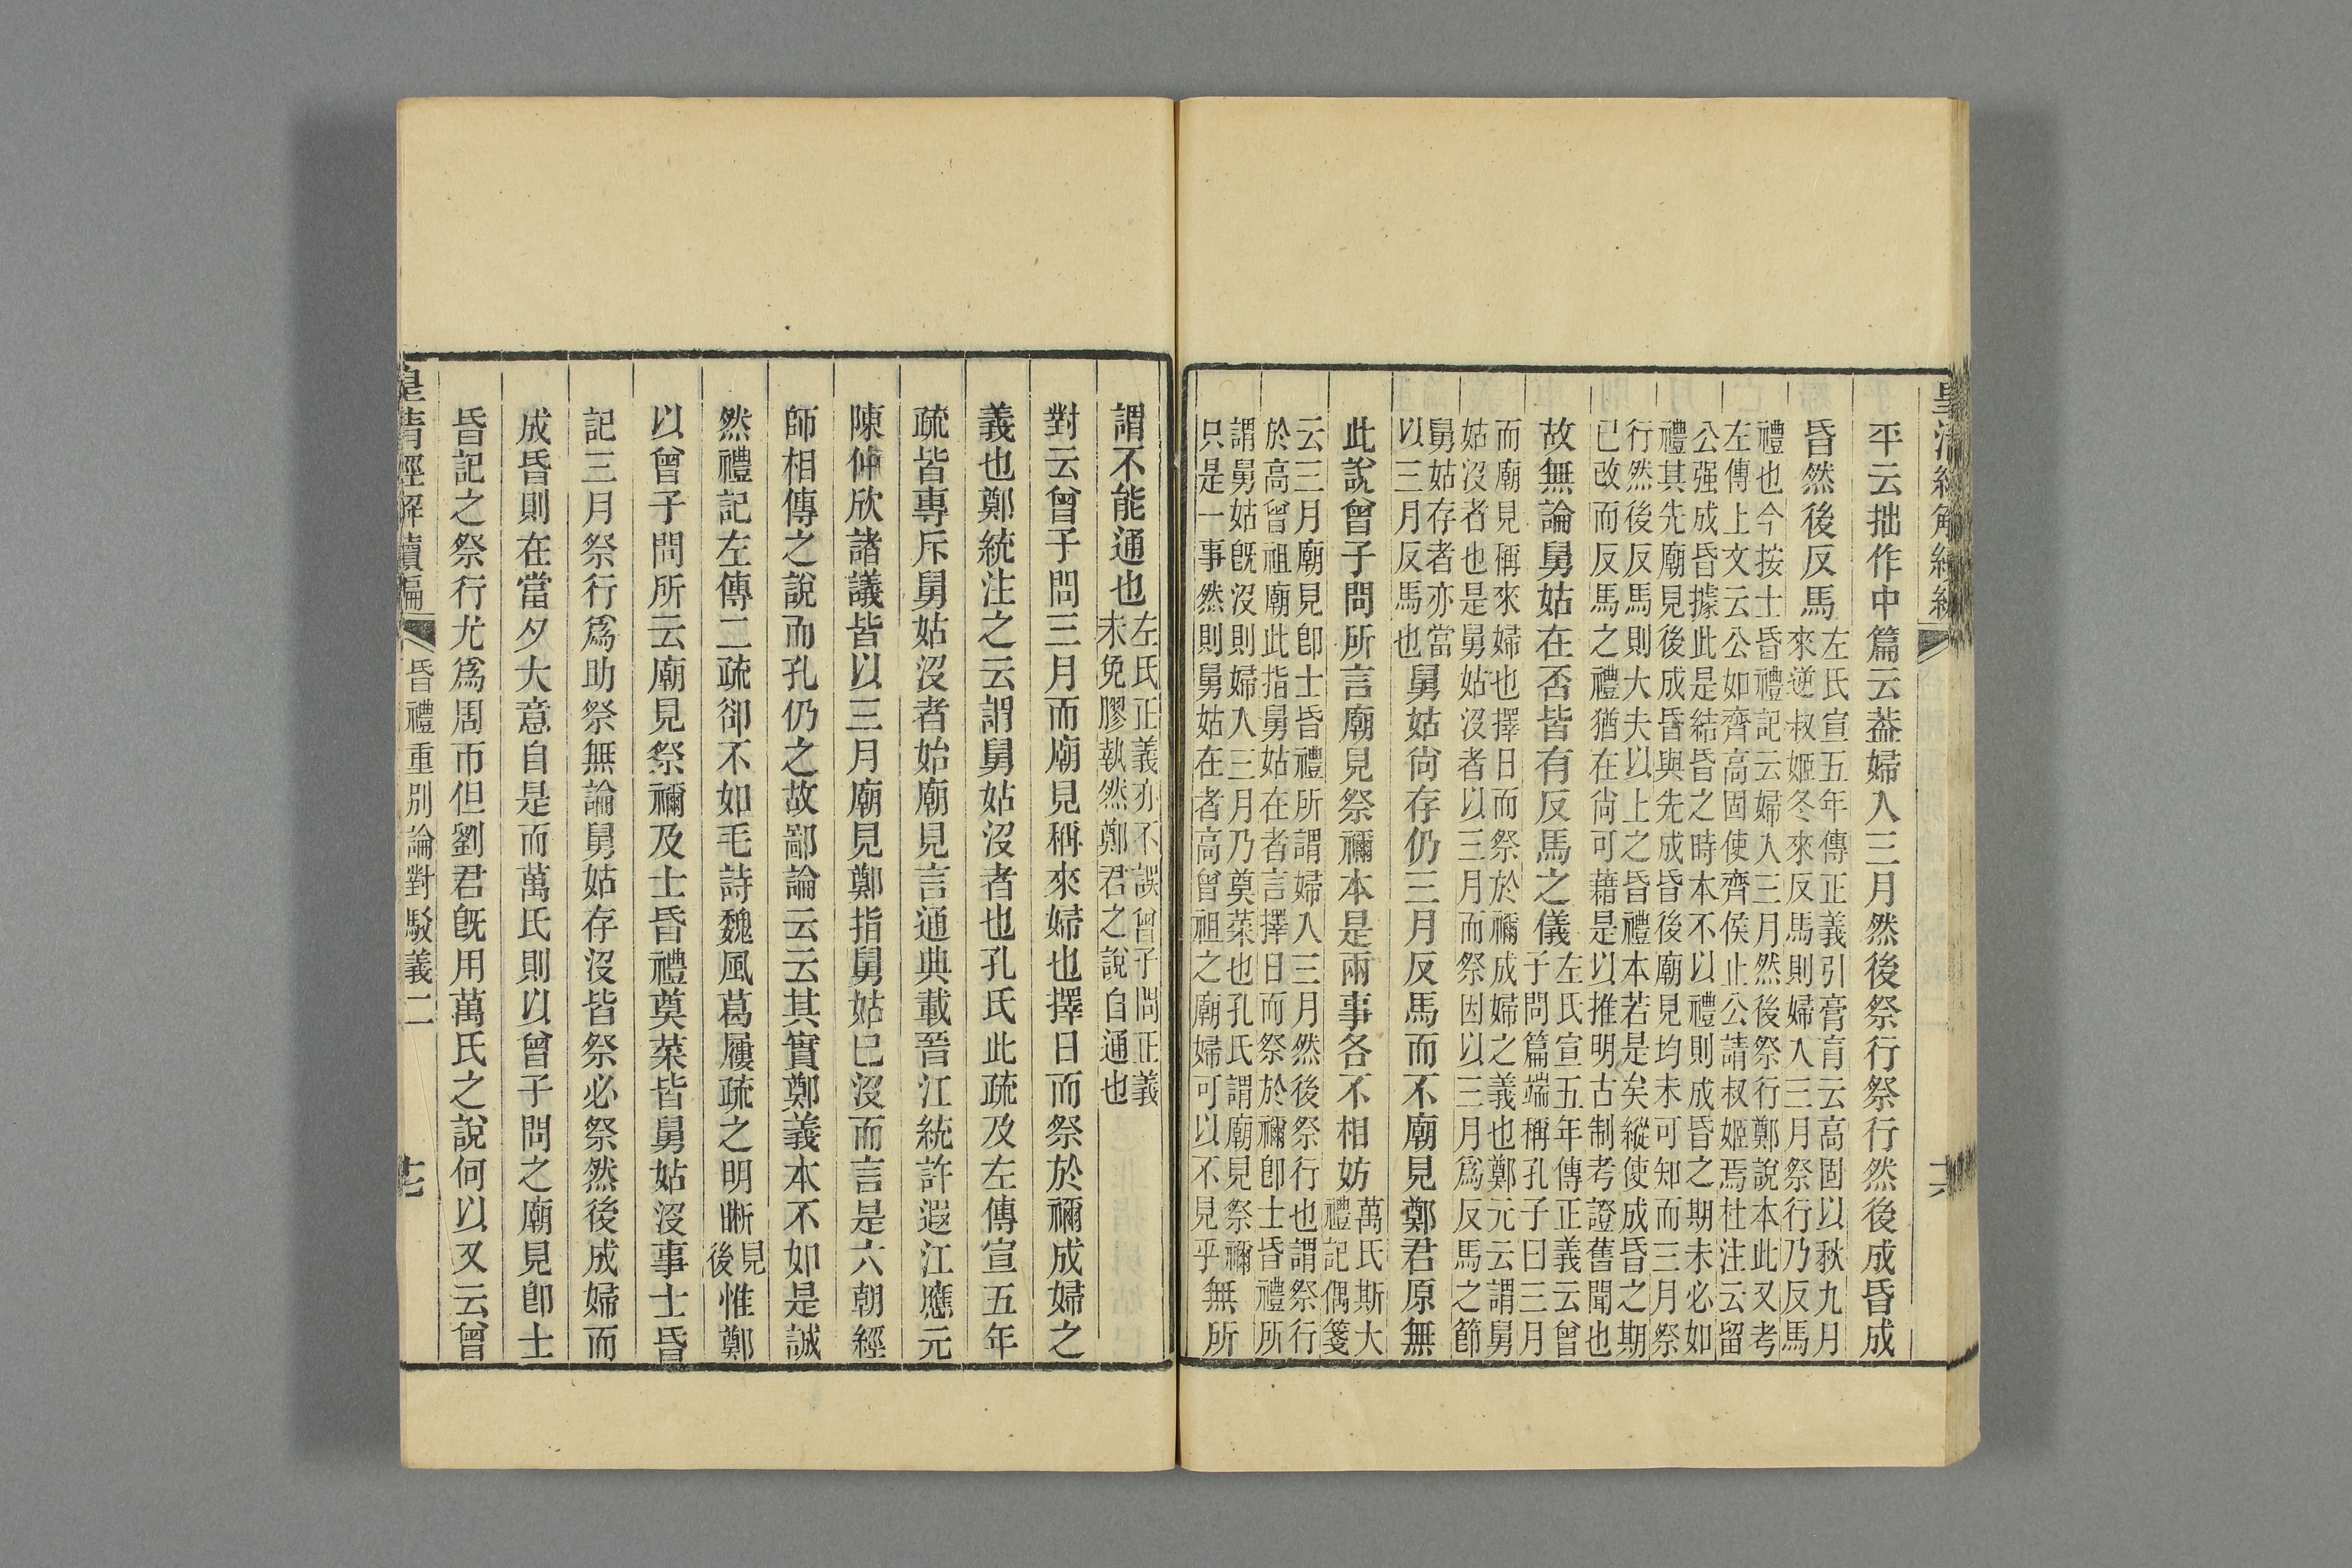 平云拙作中篇云葢婦入三月然後祭行祭行然後成昏成
昏然後反馬
左氏宣五年傳正義引膏肓云高固以秋九月
來逆叔姬冬來反馬則婦入三月祭行乃反馬
禮也今按士昏禮記云婦入三月然後祭行鄭說本此又考
左傳上文云公如齊高固使齊侯止公請叔姬焉杜注云留
公强成昏據此是結昏之時本不以禮則成昏之期未必如
禮其先廟見後成昏與先成昏後廟見均未可知而三月祭
行然後反馬則大夫以上之昏禮本若是矣縱使成昏之期
已改而反馬之禮猶在尙可藉是以推明古制考證舊聞也
故無論舅姑在否皆有反馬之儀
左氏宣五年傳正義云曾
子問篇端稱孔子曰三月
而廟見稱來婦也擇日而祭於禰成婦之義也鄭元云謂舅
姑沒者也是舅姑沒者以三月而祭因以三月爲反馬之節
舅姑存者亦當
以三月反馬也
舅姑尙存仍三月反馬而不廟見鄭君原無
此說曾子問所言廟見祭禰本是兩事各不相妨
萬氏斯大
禮記偶箋
云三月廟見卽士昏禮所謂婦入三月然後祭行也謂祭行
於高曾祖廟此指舅姑在者言擇日而祭於禰卽士昏禮所
謂舅姑旣沒則婦入三月乃奠菜也孔氏謂廟見祭禰
只是一事然則舅姑在者高曾祖之廟婦可以不見乎
無所
謂不能通也
左氏正義亦不誤曾子問正義
未免膠執然鄭君之說自通也
對云曾子問三月而廟見稱來婦也擇日而祭於禰成婦之
義也鄭統注之云謂舅姑沒者也孔氏此疏及左傳宣五年
疏皆專斥舅姑沒者始廟見言通典載晉江統許遐江應元
陳仲欣諸議皆以三月廟見鄭指舅姑已沒而言是六朝經
師相傳之說而孔仍之故鄙論云云其實鄭義本不如是誠
然禮記左傳二疏卻不如毛詩魏風葛屨疏之明晰
見
後
惟鄭
以曾子問所云廟見祭禰及士昏禮奠菜皆舅姑沒事士昏
記三月祭行爲助祭無論舅姑存沒皆祭必祭然後成婦而
成昏則在當夕大意自是而萬氏則以曾子問之廟見卽士
昏記之祭行尤爲周帀但劉君旣用萬氏之說何以又云曾
皇清經解續編
昏禮重別論對駁義二